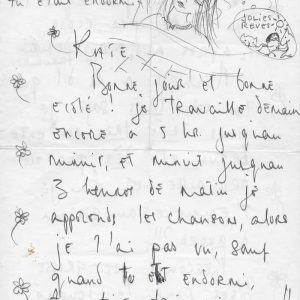 tu étais endormi
JOLIES
REVES
Katie
Bonne jour et bonne
ecole! je travaille demain
encore a 5 hr. jusquau
minuit, et minuit jusquau
3 heures de matin je
apprends les chansons, alors
je t'ai pas vu, sauf
quand tu et endormi,